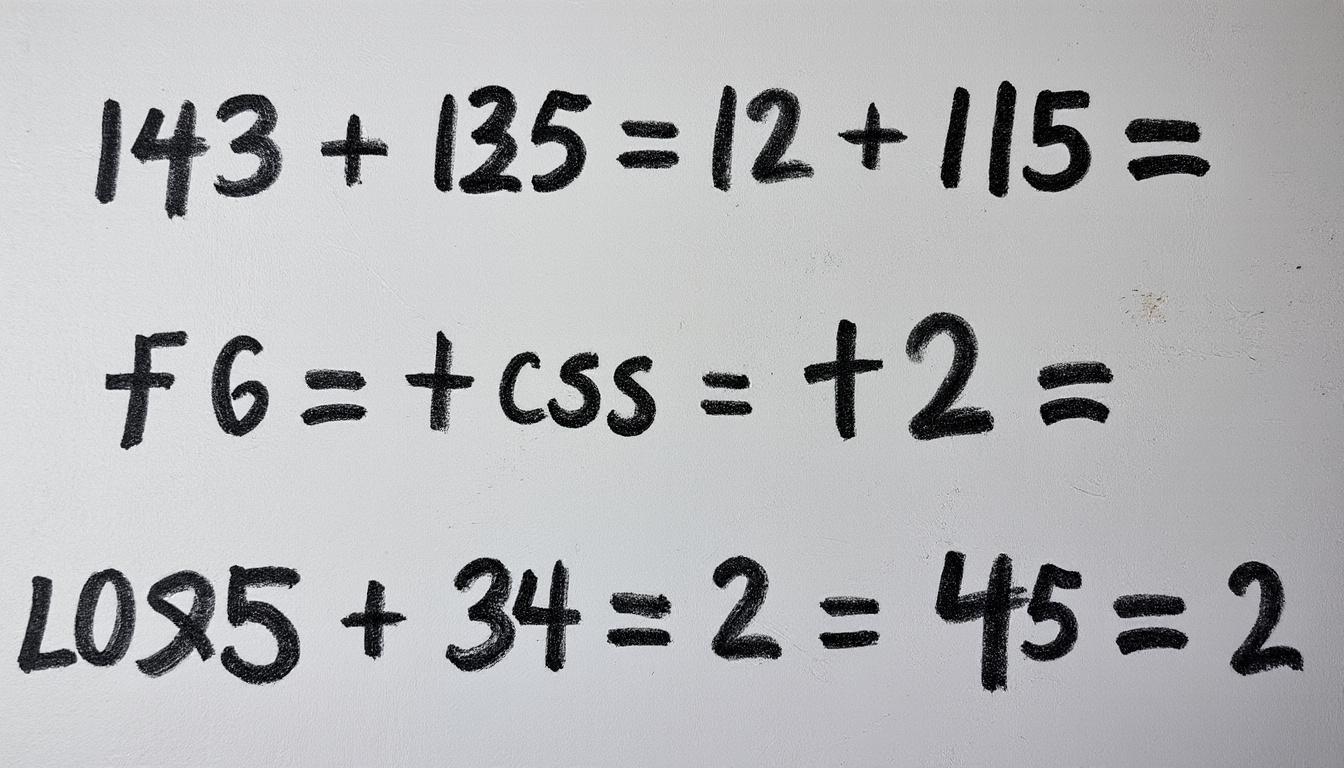 143 + 135 = 12 + 115 =
F 6 = + css = + 2 =
5 + 34 = 2 = 45 = 2